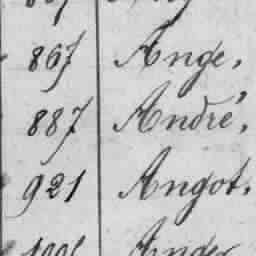 867 Ange,
887 André,
921 Angot.